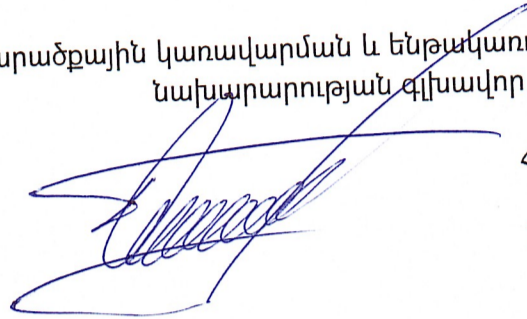 արածքային կառավարման և ենթակառո
նախարարության գլխավոր